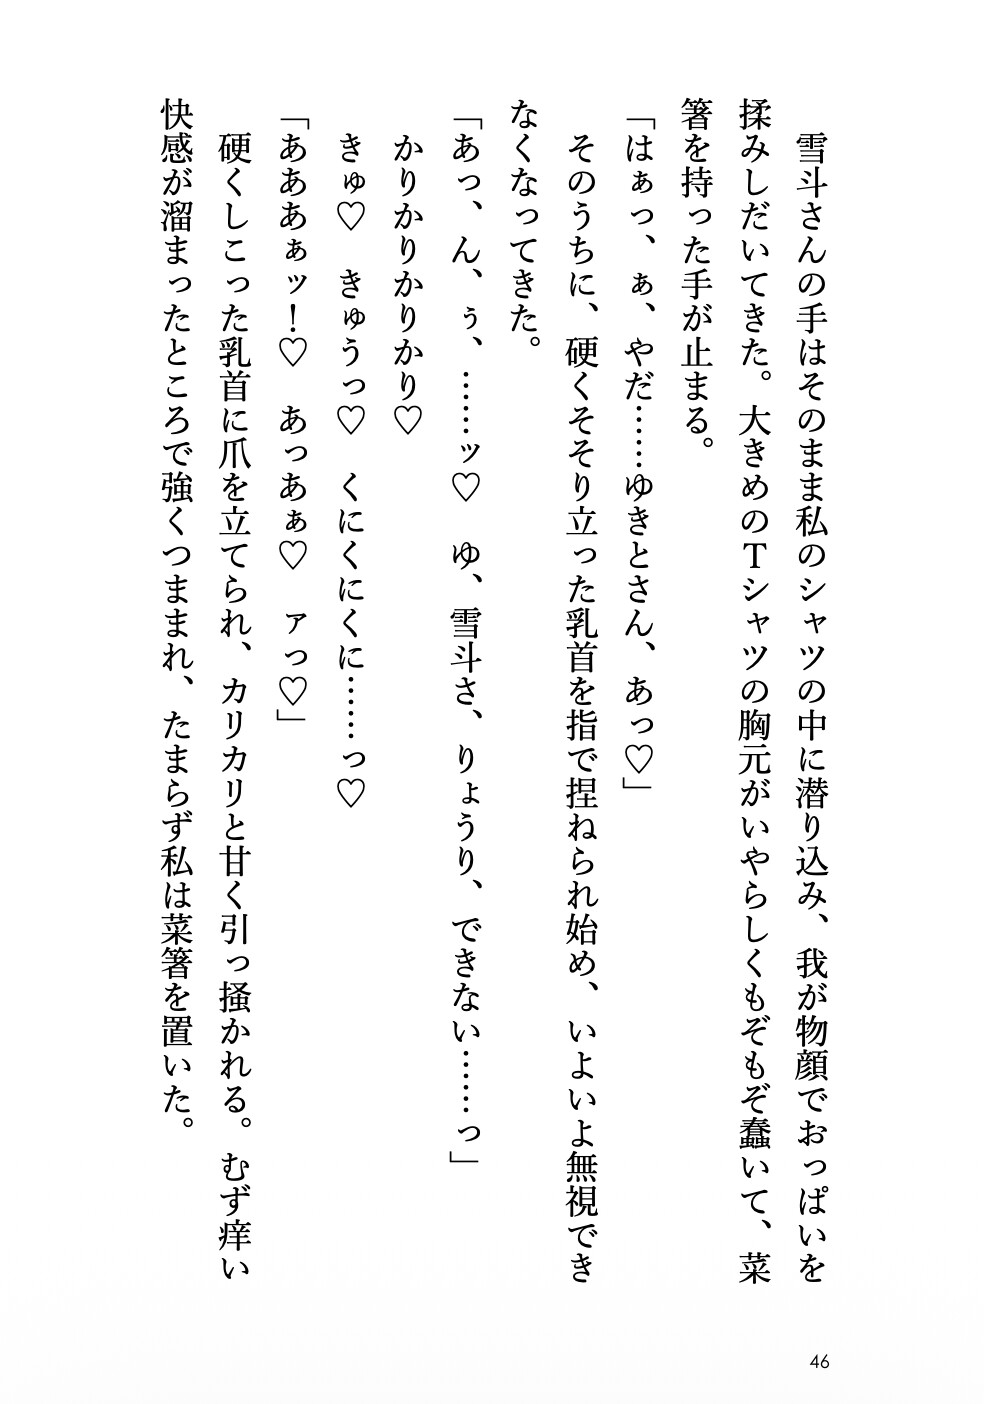 雪斗さんの手はそのまま私のシャツの中に潜り込み、我が物顔でおっぱいを
揉みしだいてきた。大きめのＴシャツの胸元がいやらしくもぞもぞ蠢いて、菜
箸を持った手が止まる。
「はぁっ、ぁ、やだ……ゆきとさん、あっ♡」
そのうちに、硬くそそり立った乳首を指で捏ねられ始め、いよいよ無視でき
なくなってきた。
「あっ、ん、ぅ、……ッ♡　ゆ、雪斗さ、りょうり、できない……っ」
かりかりかりかり♡
きゅ♡　きゅうっ♡　くにくにくに……っ♡
「あああぁッ！♡　あっあぁ♡　ァっ♡」
硬くしこった乳首に爪を立てられ、カリカリと甘く引っ掻かれる。むず痒い
快感が溜まったところで強くつままれ、たまらず私は菜箸を置いた。
46